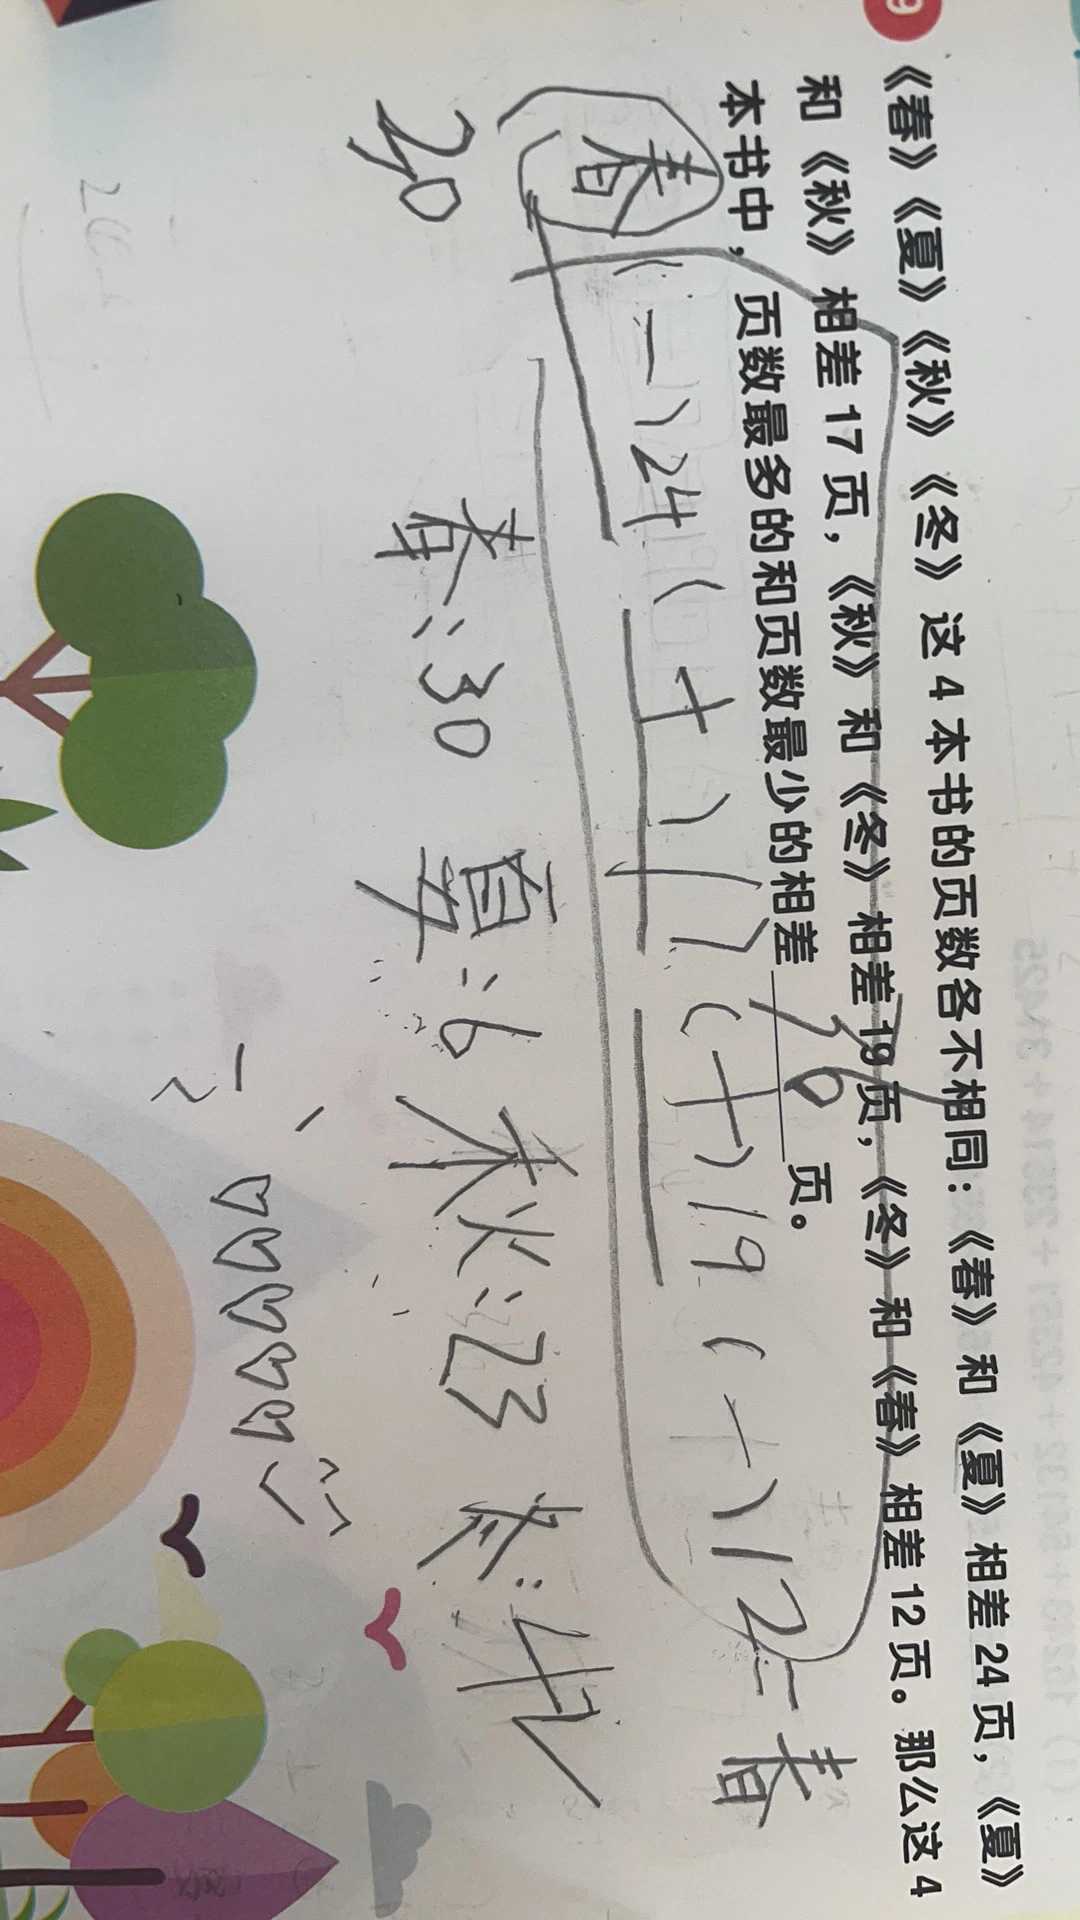 9 《春》《夏》《秋》《冬》这 4 本书的页数各不相同:《春》和《夏》相差 24 页,《夏》
和《秋》相差 17 页,《秋》和《冬》相差 19 页,《冬》和《春》相差 12 页。那么这 4
本书中,页数最多的和页数最少的相差 36 页。
春 (-) 24 (+) 17 (+) 19 (-) 12 = 春
20 春:30 夏:6 秋:23 冬:42